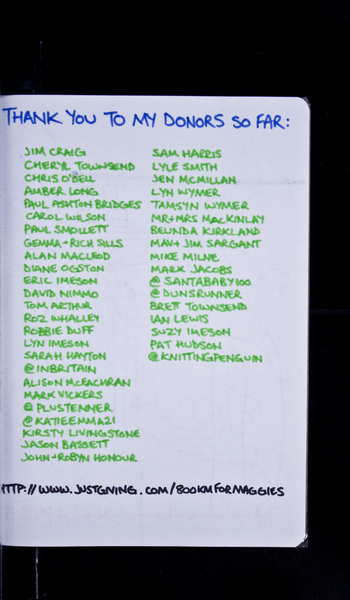 THANK YOU TO MY DONORS SO FAR:
JIM CRAIG
CHERYL TOWNSEND
CHRIS O'BELL
AMBER LONG
PAUL ASHTON BRIDGES
CAROL WILSON
PAUL SMOLLETT
GEMMA + RICH SILLS
ALAN MACLEOD
DIANE OGSTON
ERIC IMESON
DAVID NIMMO
TOM ARTHUR
ROZ WHALLEY
ROBBIE DUFF
LYN IMESON
SARAH HAYTON
@INBRITAIN
ALISON McEACHRAN
MARK VICKERS
@PLUSTENNER
@KATIEEMMA21
KIRSTY LIVINGSTONE
JASON BASSETT
JOHN + ROBYN HONOUR
SAM HARRIS
LYLE SMITH
JEN MCMILLAN
LYN WYMER
TAMSYN WYMER
MR + MRS MACKINLAY
BELINDA KIRKLAND
MAV + JIM SARGANT
MIKE MILNE
MARK JACOBS
@SANTABABY100
@DUNSRUNNER
BRETT TOWNSEND
IAN LEWIS
SUZY IMESON
PAT HUDSON
@KNITTINGPENGUIN
HTTP://WWW.JUSTGIVING.COM/800KMFORMAGGIES